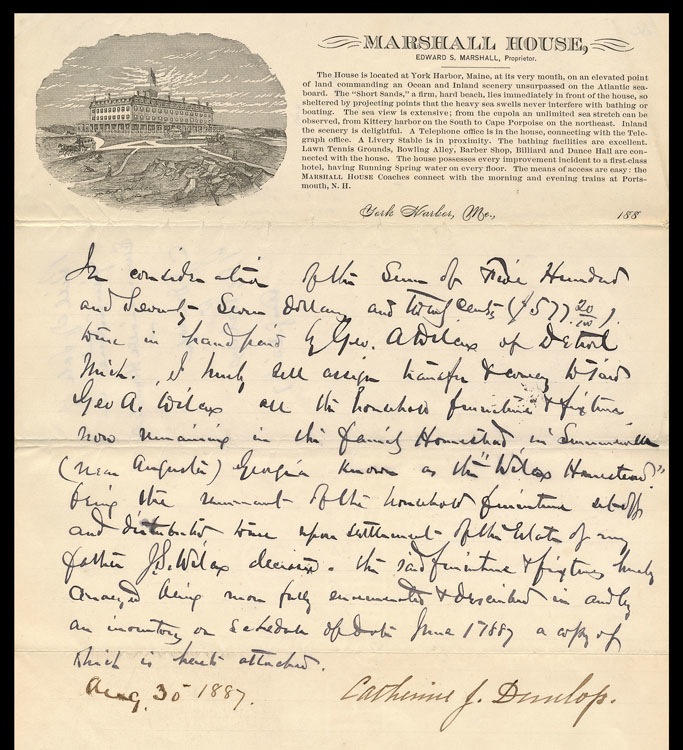 MARSHALL HOUSE,
EDWARD S. MARSHALL, Proprietor.
The House is located at York Harbor, Maine, at its very mouth, on an elevated point
of land commanding an Ocean and Inland scenery unsurpassed on the Atlantic sea-
board. The "Short Sands," a firm, hard beach, lies immediately in front of the house, so
sheltered by projecting points that the heavy sea swells never interfere with bathing or
boating. The sea view is extensive; from the cupola an unlimited sea stretch can be
observed, from Kittery harbor on the South to Cape Porpoise on the northeast. Inland
the scenery is delightful. A Telephone office is in the house, connecting with the Tele-
graph office. A Livery Stable is in proximity. The bathing facilities are excellent.
Lawn Tennis Grounds, Bowling Alley, Barber Shop, Billiard and Dance Hall are con-
nected with the house. The house possesses every improvement incident to a first-class
hotel, having Running Spring water on every floor. The means of access are easy: the
MARSHALL HOUSE Coaches connect with the morning and evening trains at Ports-
mouth, N. H.
York Harbor, Me., 188
In consideration of the Sum of Five Hundred
and Seventy Seven dollars and twenty cents ($577.20/100).
to me in hand paid by Geo. A Wilcox of Detroit
Mich., I hereby sell assign transfer & convey to said
Geo A. Wilcox all the household furniture & fixtures
now remaining in the family Homestead in Summerville
(near Augusta) Georgia known as the "Wilcox Homestead"
being the remnant of the household furniture set off
and distributed to me upon settlement of the Estate of my
father J.S. Wilcox deceased. the said furniture & fixtures hereby
conveyed being more fully enumerated & described in and by
an inventory or schedule of date June 1 1887 a copy of
which is hereto attached.
Aug. 30 1887.
Catherine J. Dunlop.